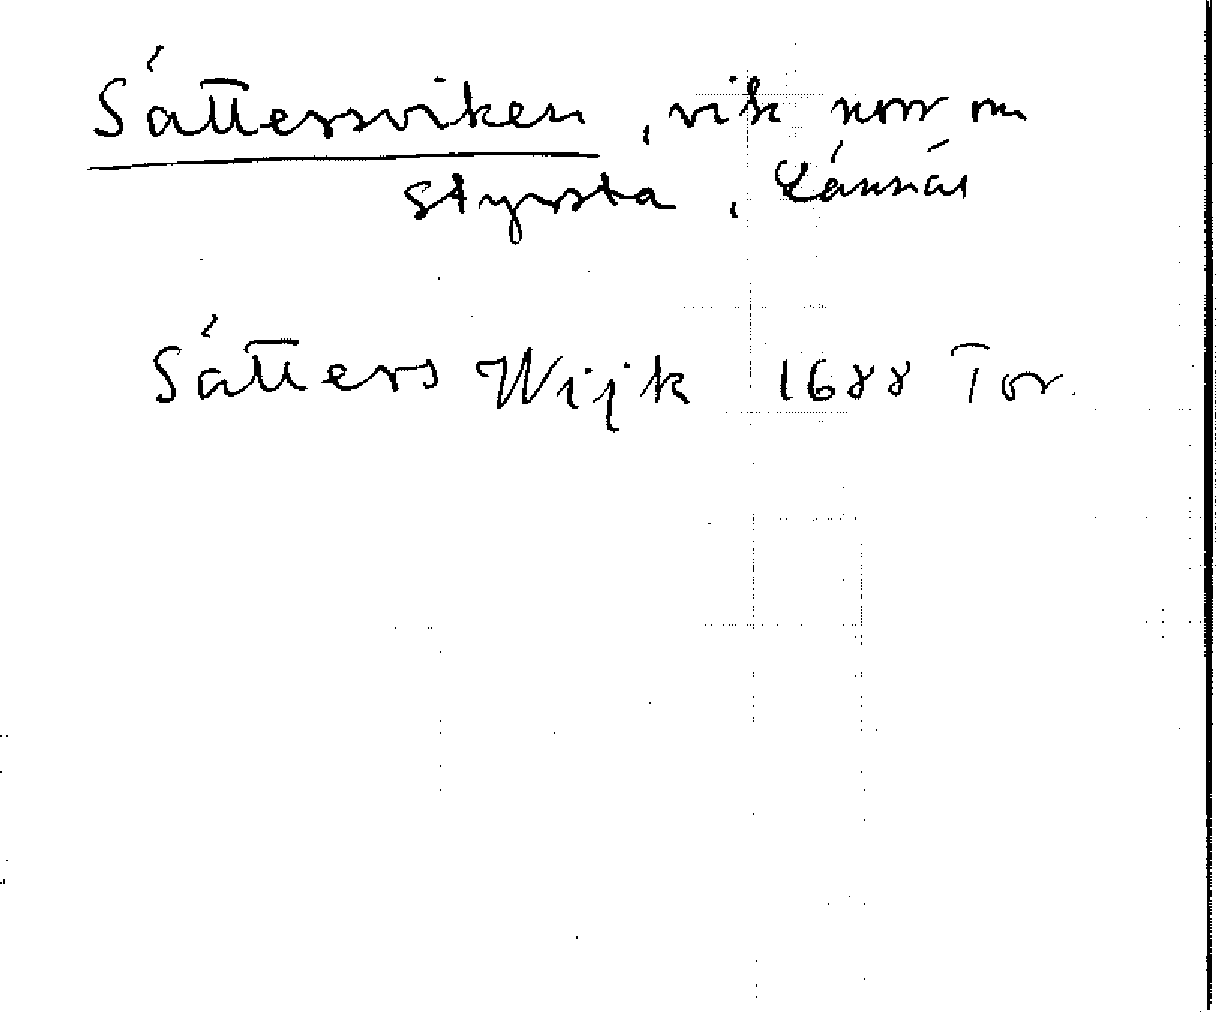 Sättersviken, vik norr om
Styrsta, Lännäs
Sätters Wijk 1688 Tor.